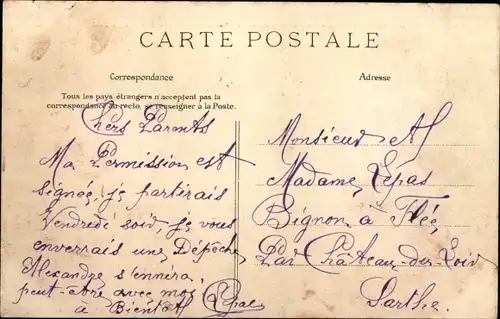 CARTE POSTALE
Correspondance
Adresse
Tous les pays étrangers n'acceptent pas la
correspondance du recto, se renseigner à la Poste.
Chers Parents
Ma Permission est
signée, je partirais
Vendredi soir, je vous
enverrais une Dépêche
Alexandre s'ennira
peut-être avec moi
à Bientôt Lepas
Monsieur et
Madame Lepas
Bignon à Flée
Par Château-du-Loir
Sarthe